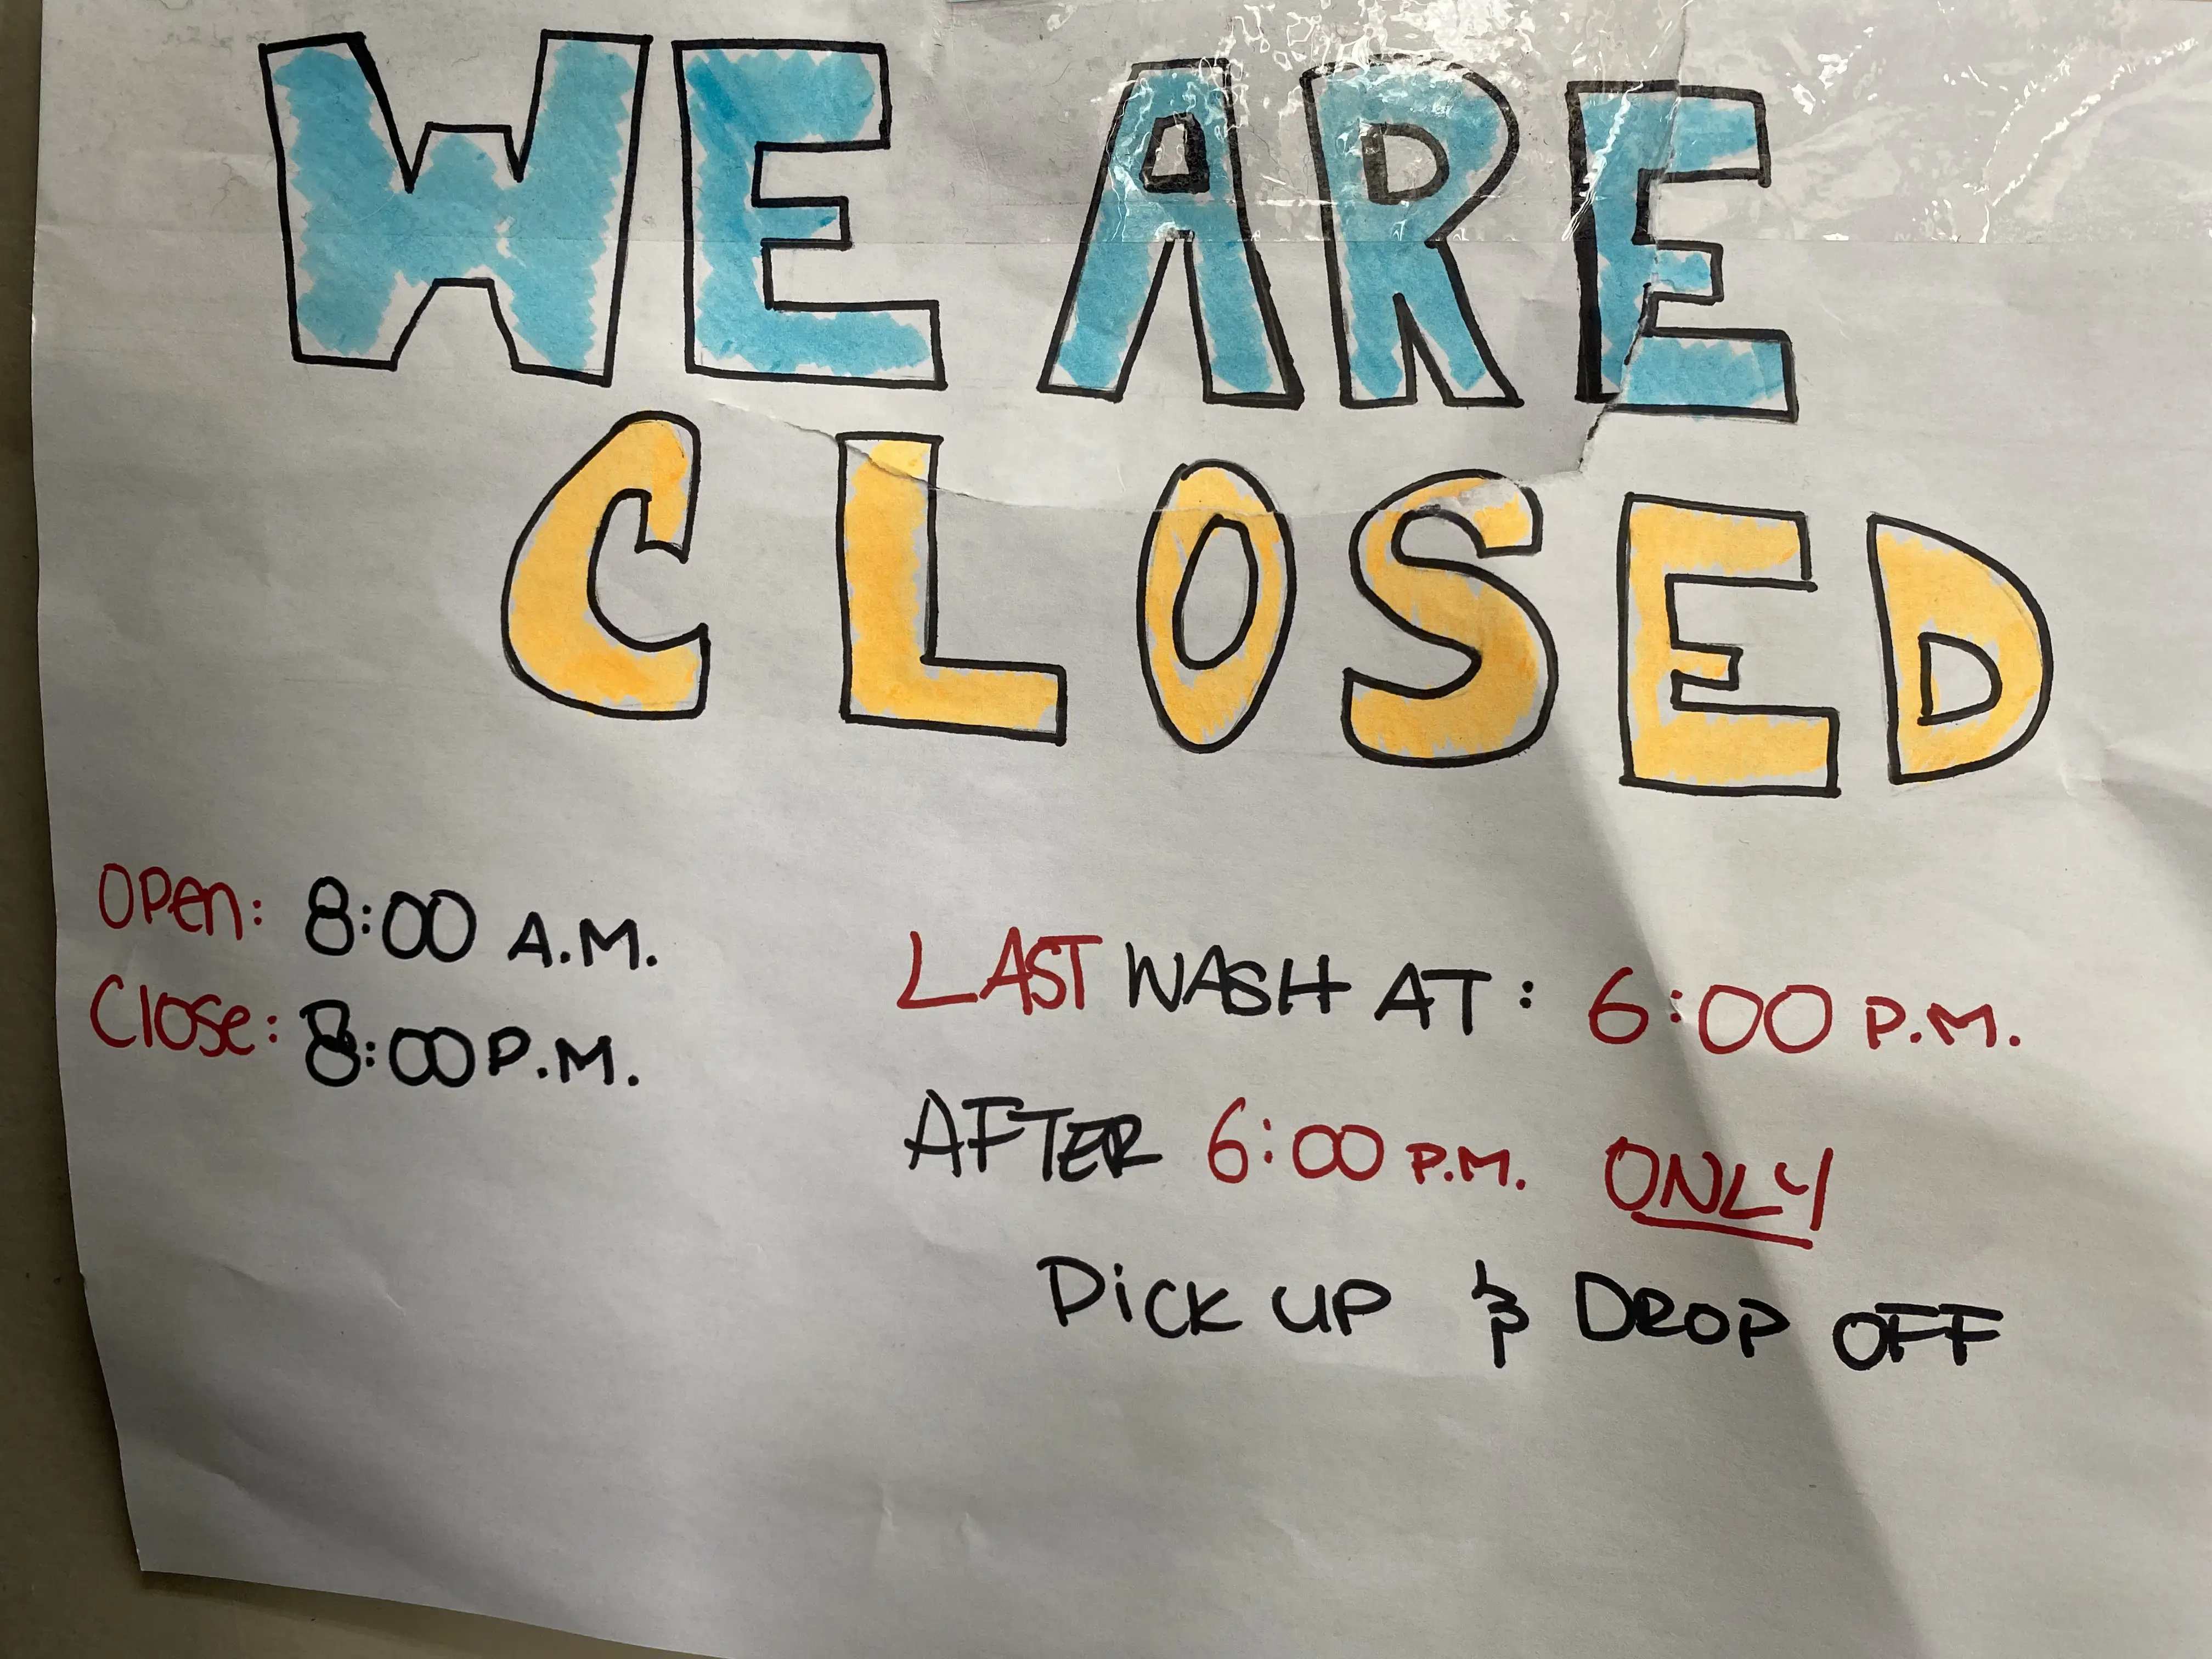 WE ARE
CLOSED
Open: 8:00 A.M.
Close: 8:00 P.M.
LAST WASH AT: 6:00 P.M.
AFTER 6:00 P.M. ONLY
PiCK UP & DROP OFF